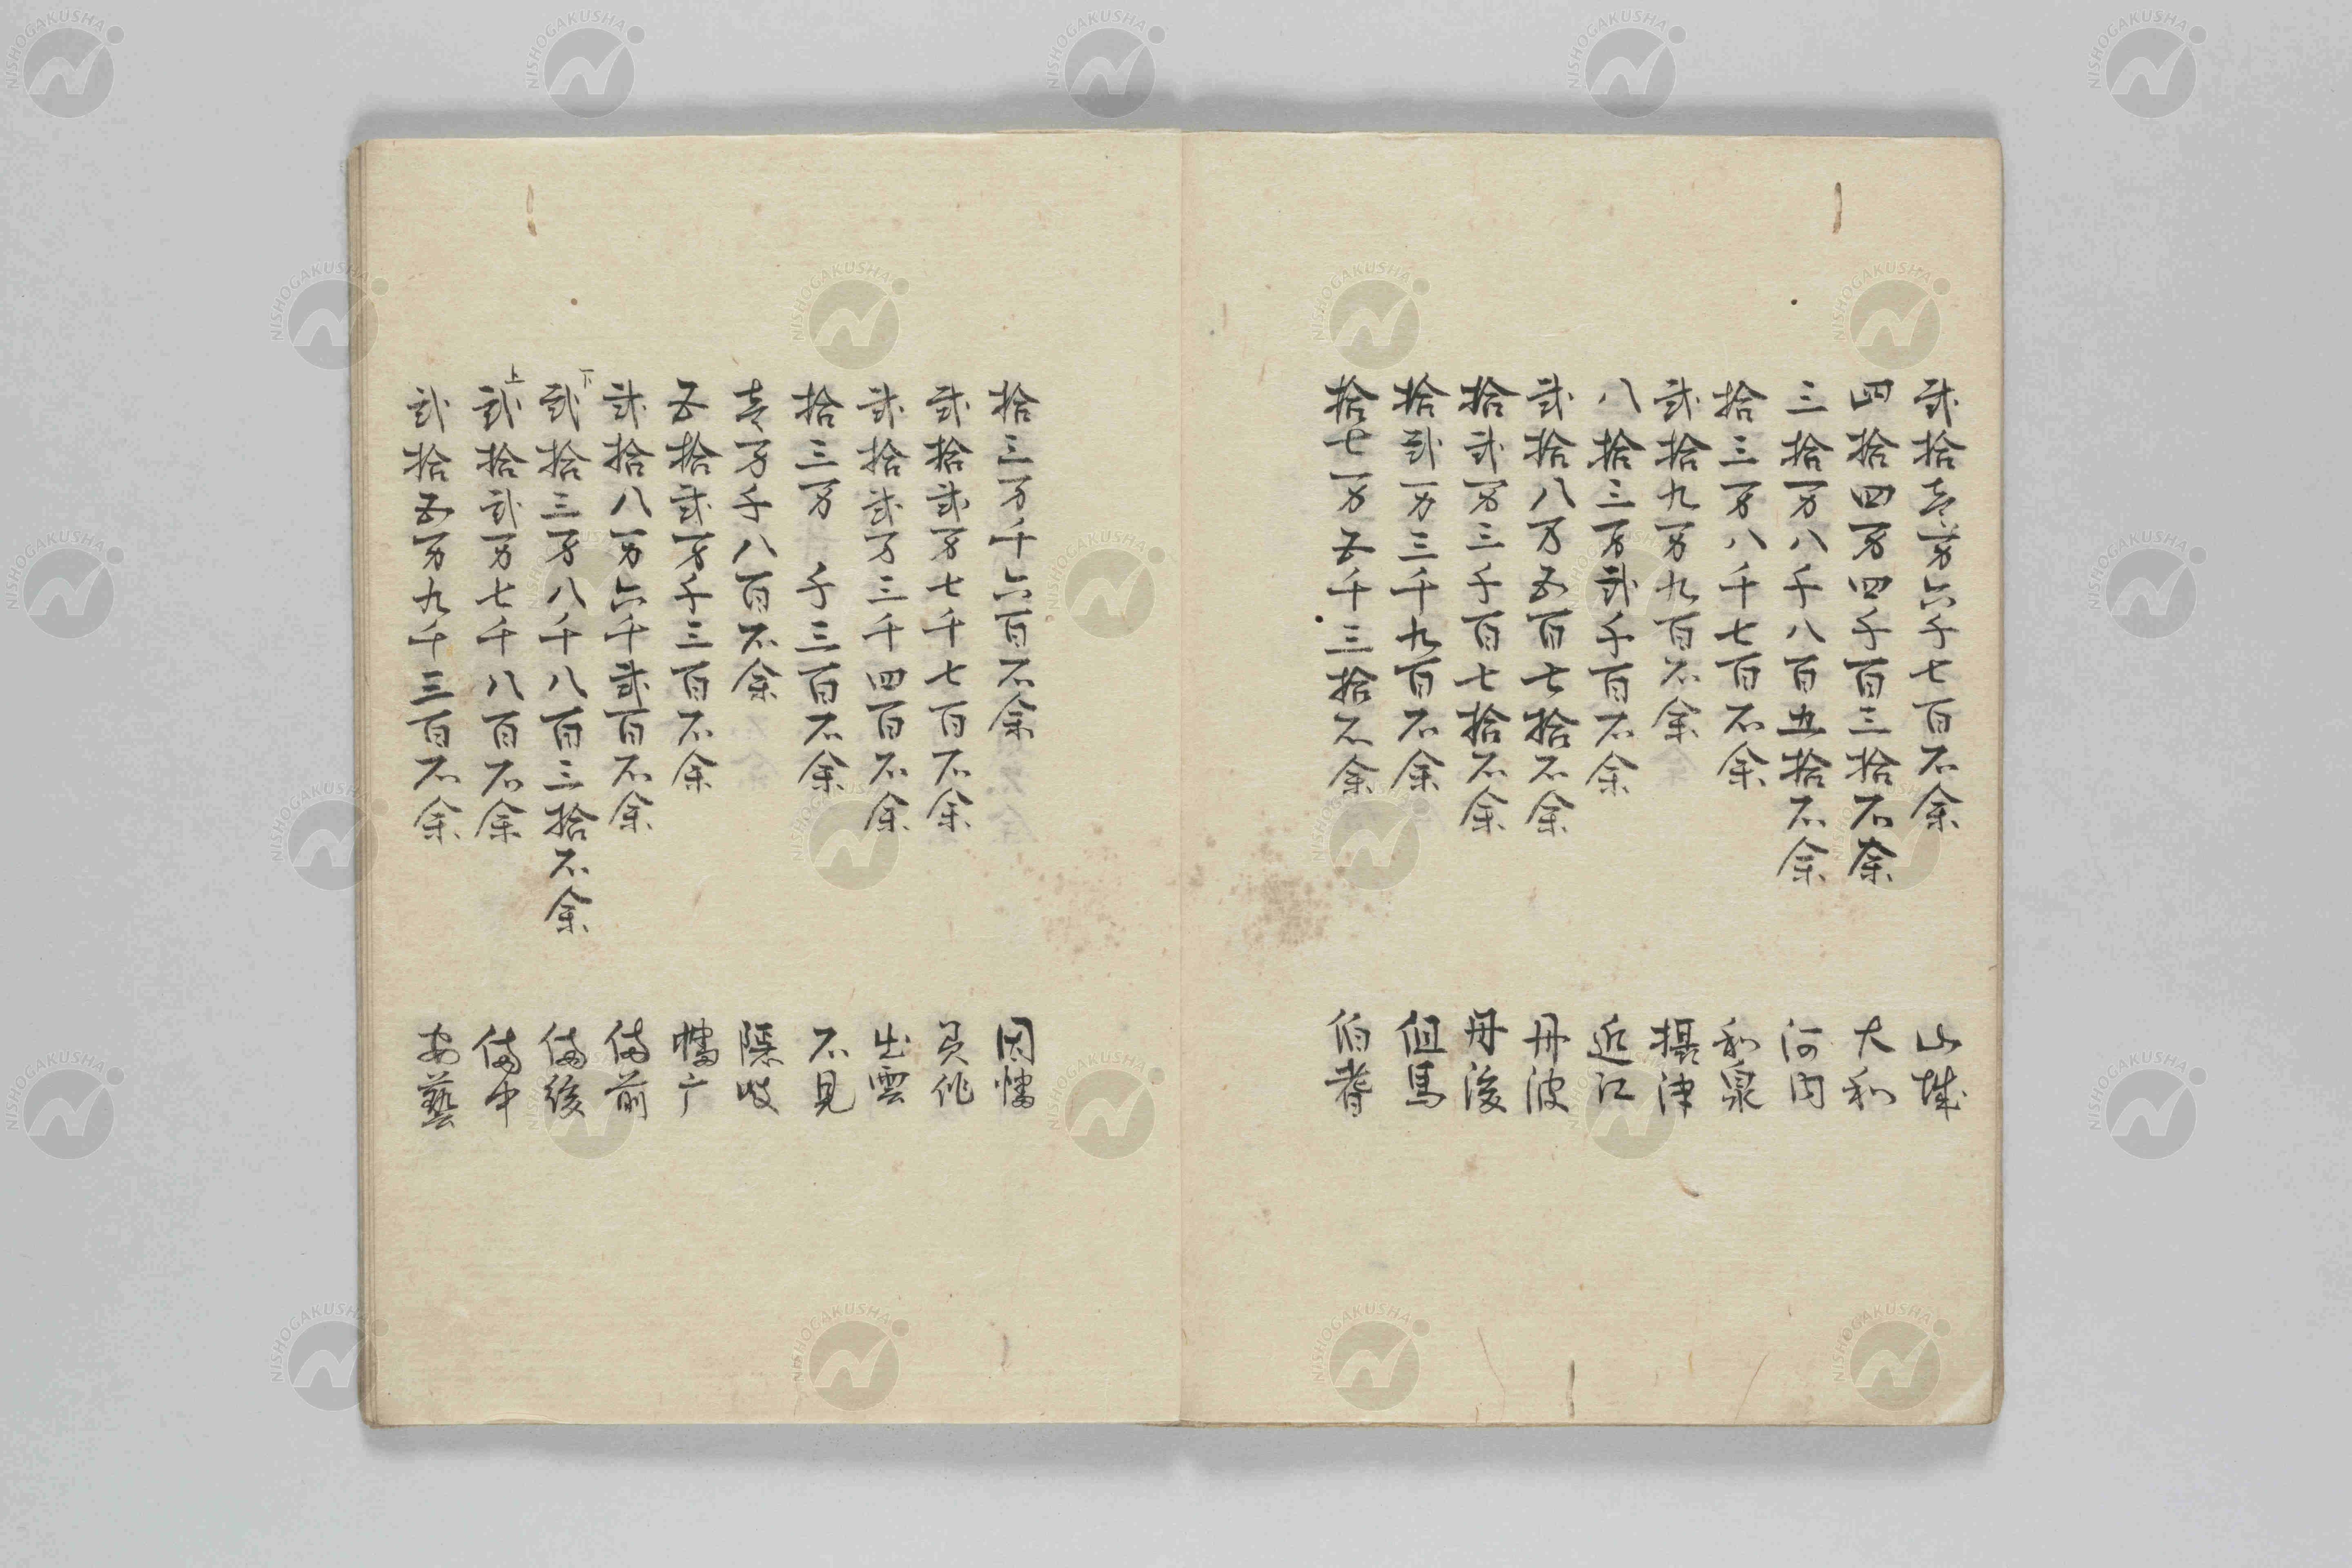 弐拾壱万六千七百石余　山城
四拾四万四千百三拾石余　大和
三拾万八千八百五拾石余　河内
拾三万八千七百石余　和泉
弐拾九万九百石余　摂津
八拾三万弐千百石余　近江
弐拾八万五百七拾石余　丹波
拾弐万三千百七拾石余　丹後
拾弐万三千九百石余　但馬
拾七万五千三拾石余　伯耆
拾三万千六百石余　因幡
弐拾弐万七千七百石余　美作
弐拾弐万三千四百石余　出雲
拾三万千三百石余　石見
壱万千八百石余　隠岐
五拾弐万千三百石余　幡广
弐拾八万六千弐百石余　備前
下
弐拾三万八千八百三拾石余　備後
上
弐拾弐万七千八百石余　備中
弐拾五万九千三百石余　安藝
NISHOGAKUSHA